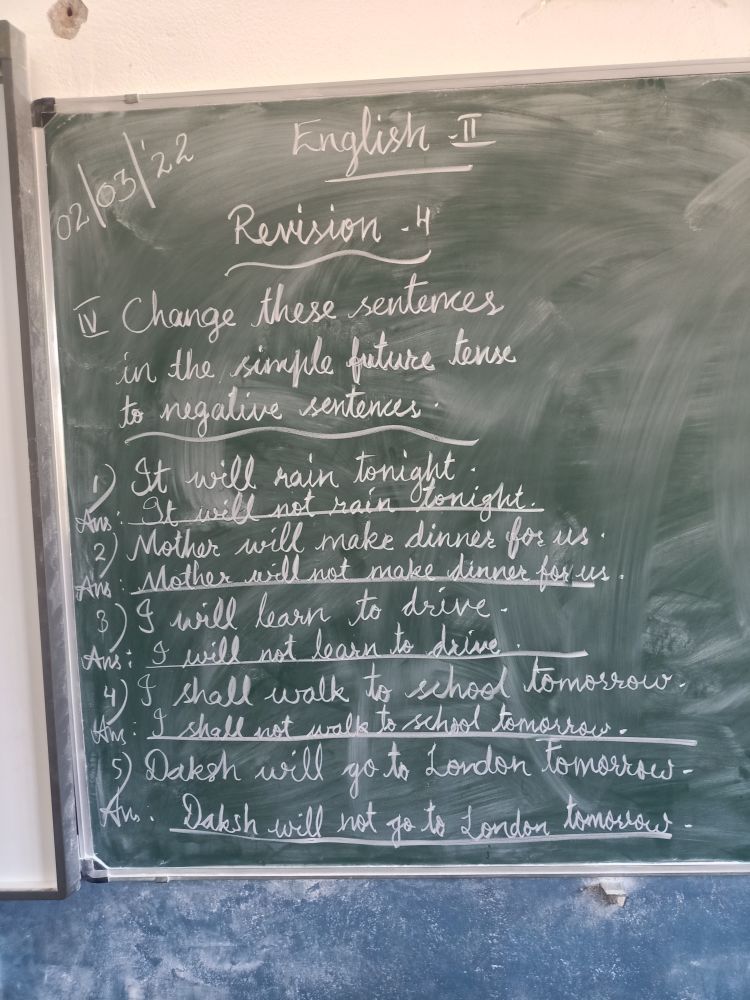 02/03/'22
English - II
Revision - 4
IV Change these sentences
in the simple future tense
to negative sentences.
1) It will rain tonight.
Ans: It will not rain tonight.
2) Mother will make dinner for us.
Ans: Mother will not make dinner for us.
3) I will learn to drive.
Ans: I will not learn to drive.
4) I shall walk to school tomorrow.
Ans: I shall not walk to school tomorrow.
5) Daksh will go to London tomorrow.
Ans: Daksh will not go to London tomorrow.